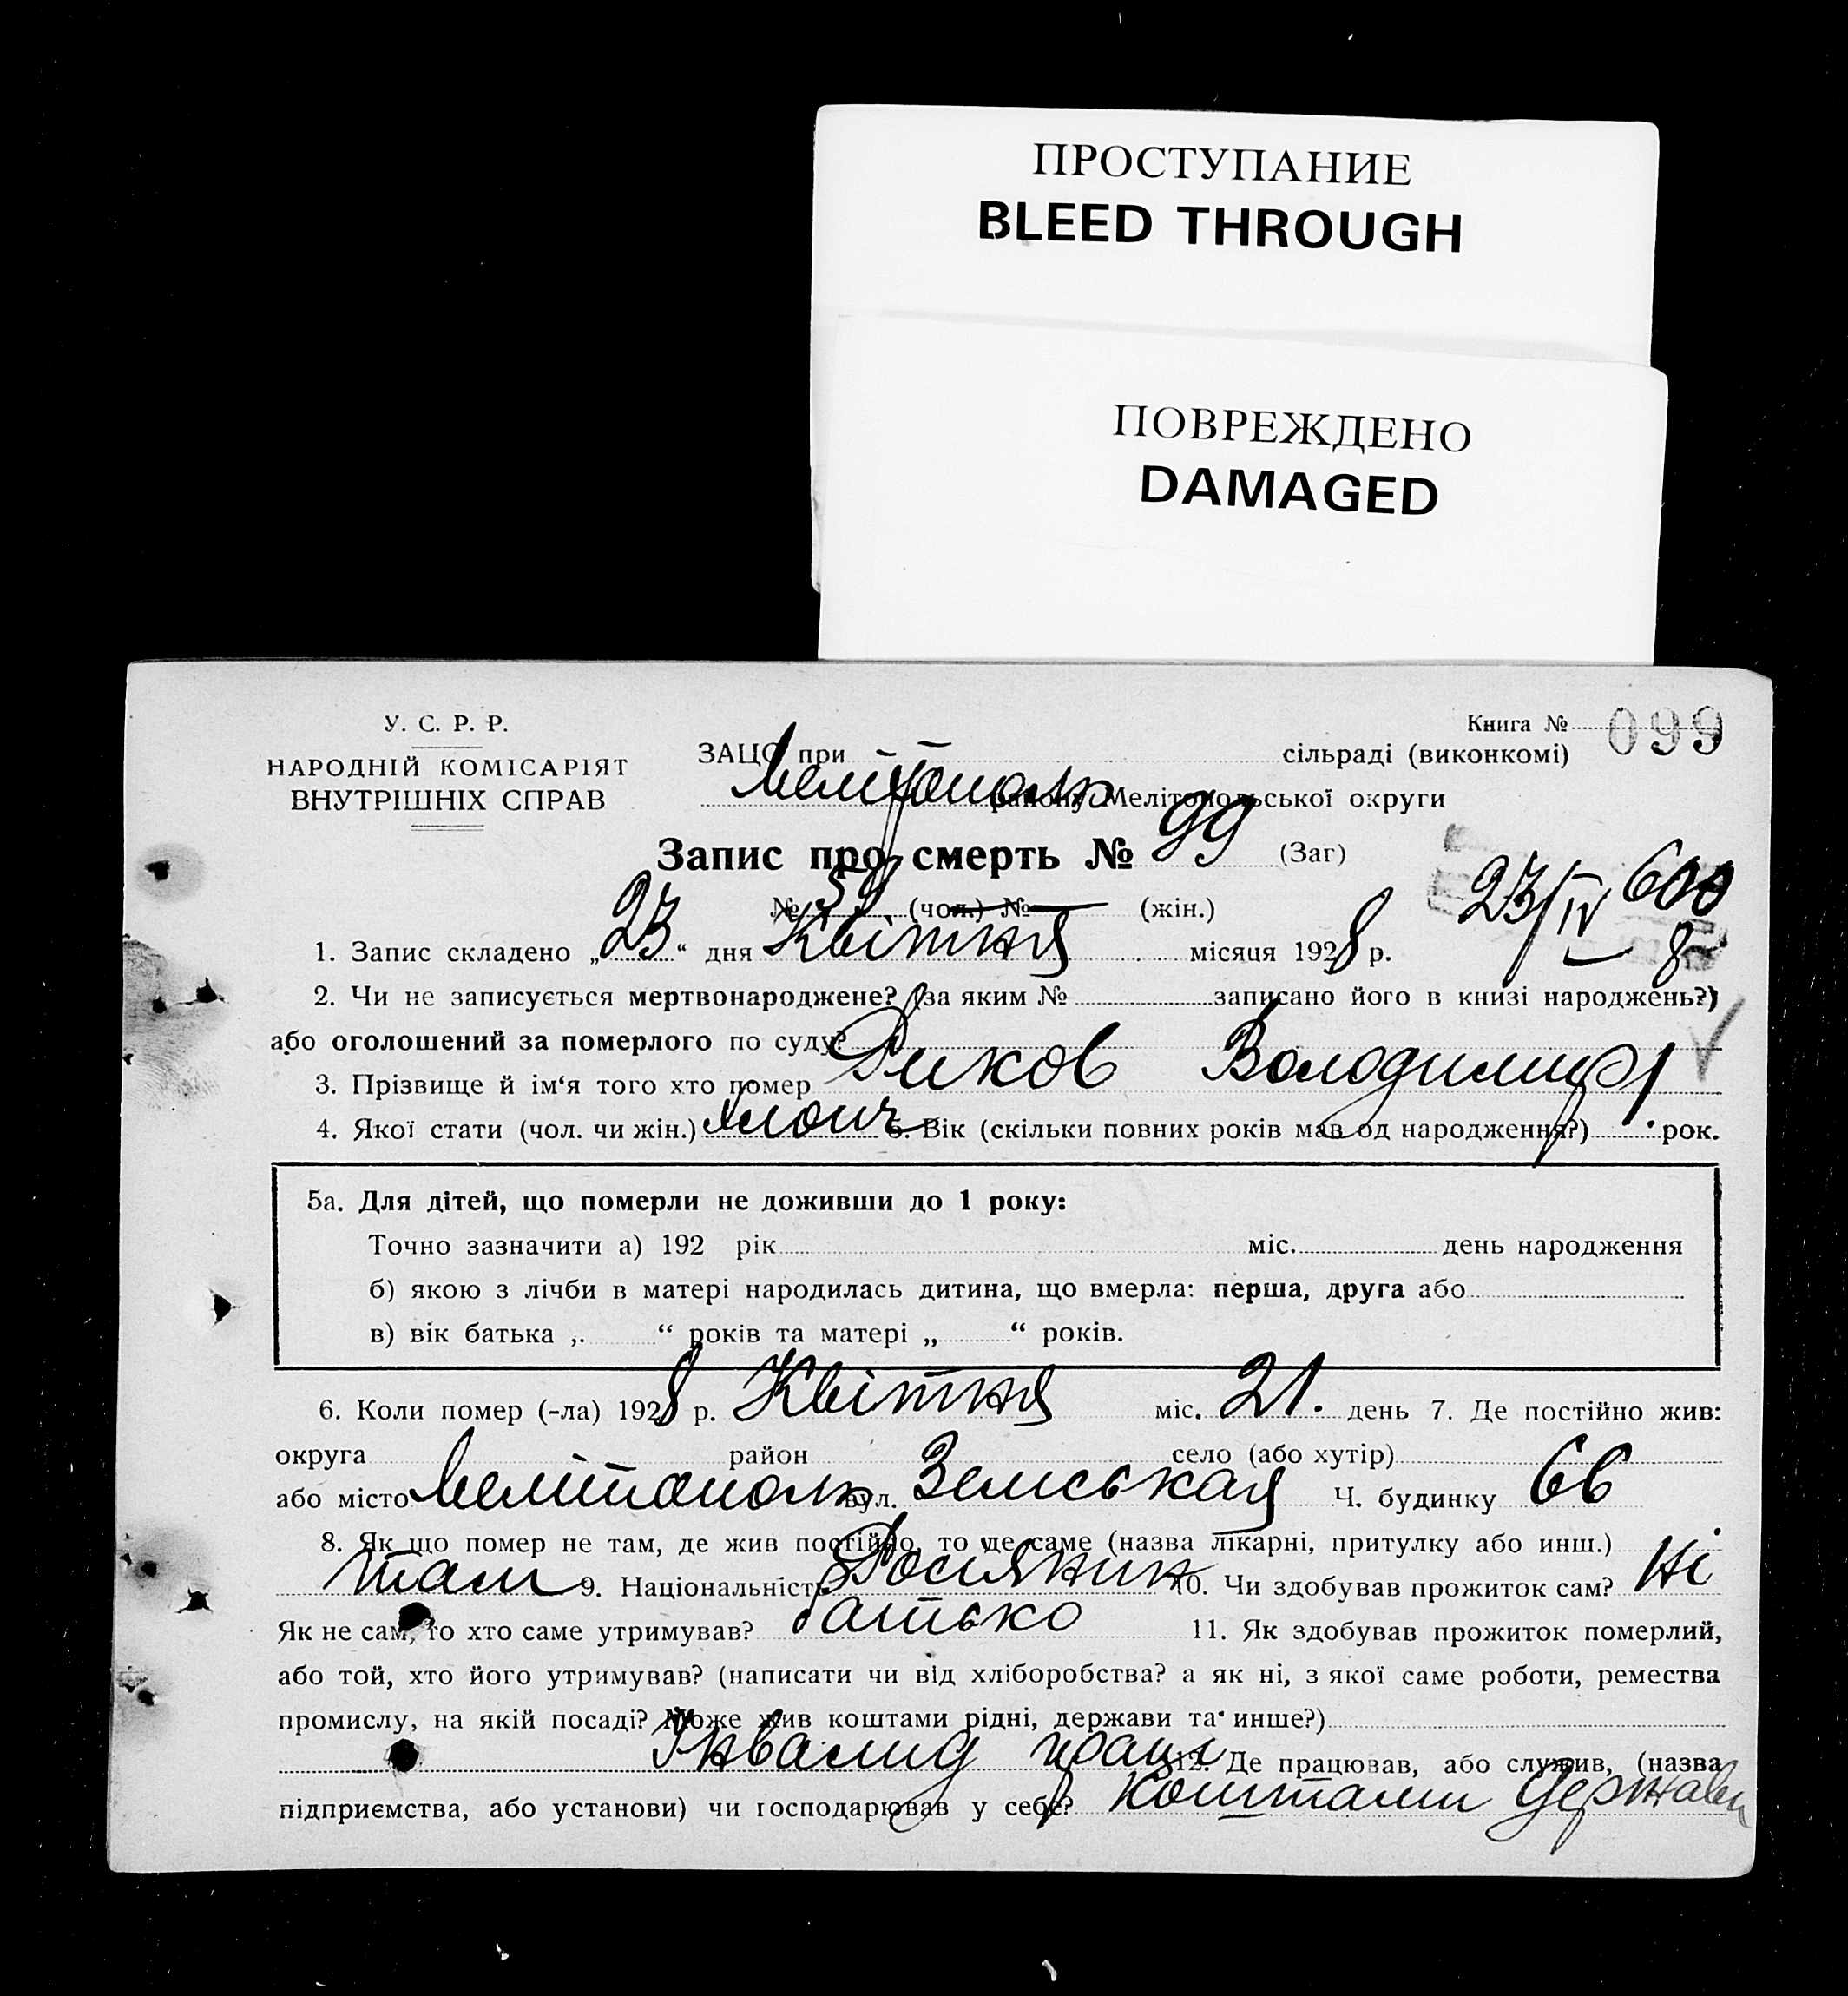 ПРОСТУПАНИЕ
BLEED THROUGH
ПОВРЕЖДЕНО
DAMAGED
У. С. Р. Р.
НАРОДНІЙ КОМІСАРІЯТ
ВНУТРІШНІХ СПРАВ
Книга № 099
ЗАЦС при сільраді (виконкомі)
Мелітополь району Мелітопольської округи
Запис про смерть № 99 (Заг)
№ 59 (чол.) № (жін.)
23/IV 600
8
1. Запис складено „23“ дня Квітня місяця 1928 р.
2. Чи не записується мертвонароджене? (за яким № записано його в книзі народжень?)
або оголошений за померлого по суду?
3. Прізвище й ім‘я того хто помер Риков Володимир
4. Якої стати (чол. чи жін.) хлопч 5. Вік (скільки повних років мав од народження?) 1 рок.
5а. Для дітей, що померли не доживши до 1 року:
Точно зазначити а) 192 рік міс. день народження
б) якою з лічби в матері народилась дитина, що вмерла: перша, друга або
в) вік батька „ “ років та матері „ “ років.
6. Коли помер (-ла) 1928 р. Квітня міс. 21. день 7. Де постійно жив:
округа район село (або хутір)
або місто Мелітополь вул. Земськая Ч. будинку 66
8. Як що помер не там, де жив постійно, то де саме (назва лікарні, притулку або инш.)
там 9. Національність Росіянин 10. Чи здобував прожиток сам? Ні
Як не сам, то хто саме утримував? батько 11. Як здобував прожиток померлий,
або той, хто його утримував? (написати чи від хліборобства? а як ні, з якої саме роботи, ремества
промислу, на якій посаді? Може жив коштами рідні, держави та инше?)
Інвалид праці 12. Де працював, або служив, (назва
підприємства, або установи) чи господарював у себе? Коштами держави